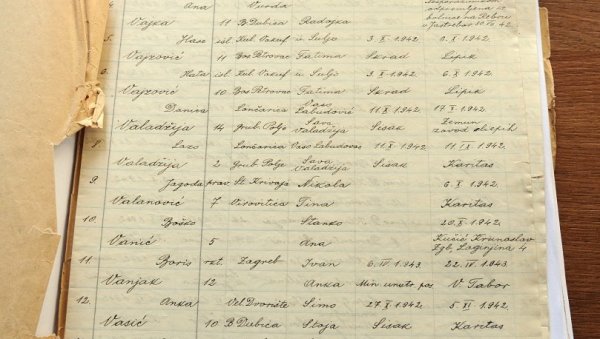 4. Ana Vurda
Vajka 11 B. Dubica Radojka
5. Hase isl. Kul. Vakuf ú Suljo 3. X. 1942. 9. X. 1942.
Vajzović 11 Bos. Petrovac Fatima Skrad Lipik
6. Hata isl. Kul. Vakuf ú Suljo 3. X. 1942. 6. X. 1942.
Vajzović 10 Bos. Petrovac Fatima Skrad Lipik
Danica Lončarica Vaso Labudović 11. X. 1942. 17. X. 1942.
Valadžija 14 Grub. Polje Sava Valadžija Sisak Zemun zavod slijepih
8. Lazo Lončarica Vaso Labudović 11. X. 1942. 11. IX. 1942.
Valadžija 2 Grub. Polje Sava Valadžija Sisak Karitas
9. Jagoda prav. St. Krivaja Nikola 6. X. 1942.
Valanović 7 Virovitica Tina Karitas
10. Boško Stanko 20. X. 1942.
Vanić 5 Ana Kučić Krunoslav Zgb. Laginjina 4
11. Boris rkt. Zagreb Ivan 6. IV. 1943. 22. IV. 1943.
Vanjak 12 Anka Min. unutr. pos. V. Tabor
12. Anka Vel. Dvorište Simo 27. X. 1942. 5. XI. 1942.
Vasić 10 B. Dubica Stoja Sisak Karitas